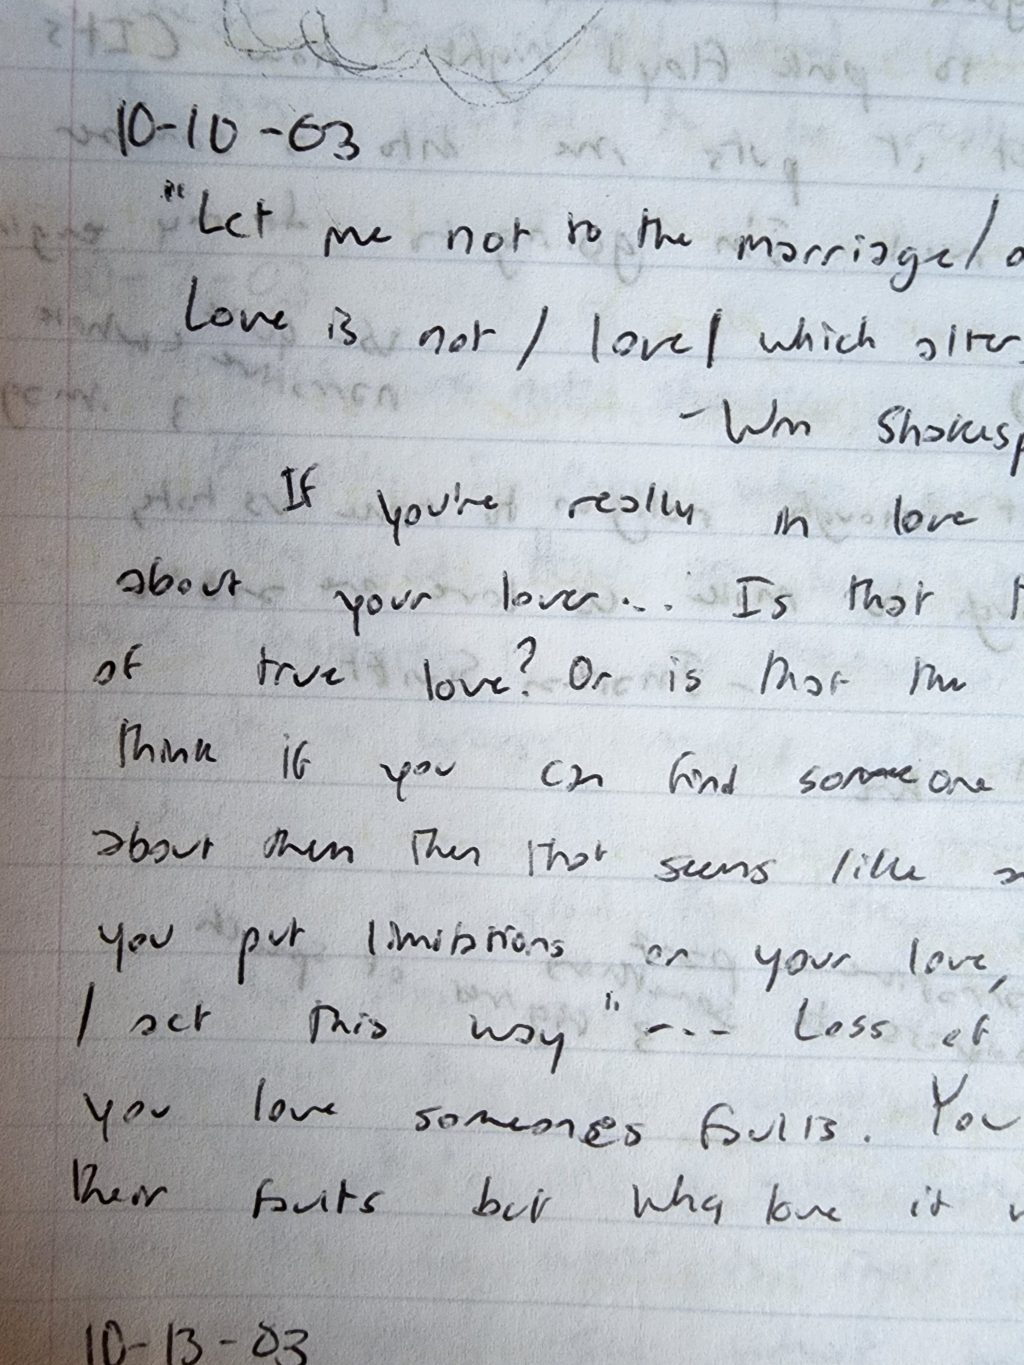 10-10-03
"Let me not to the marriage/
Love is not / love/ which alter
-Wm Shakesp
If you're really in love
about your lover... Is that
of true love? Or is that the
think if you can find someone
about them then that seems like
you put limitations on your love,
/ act this way" --- Loss of
you love someones faults. You
their faults but why love it
10-13-03